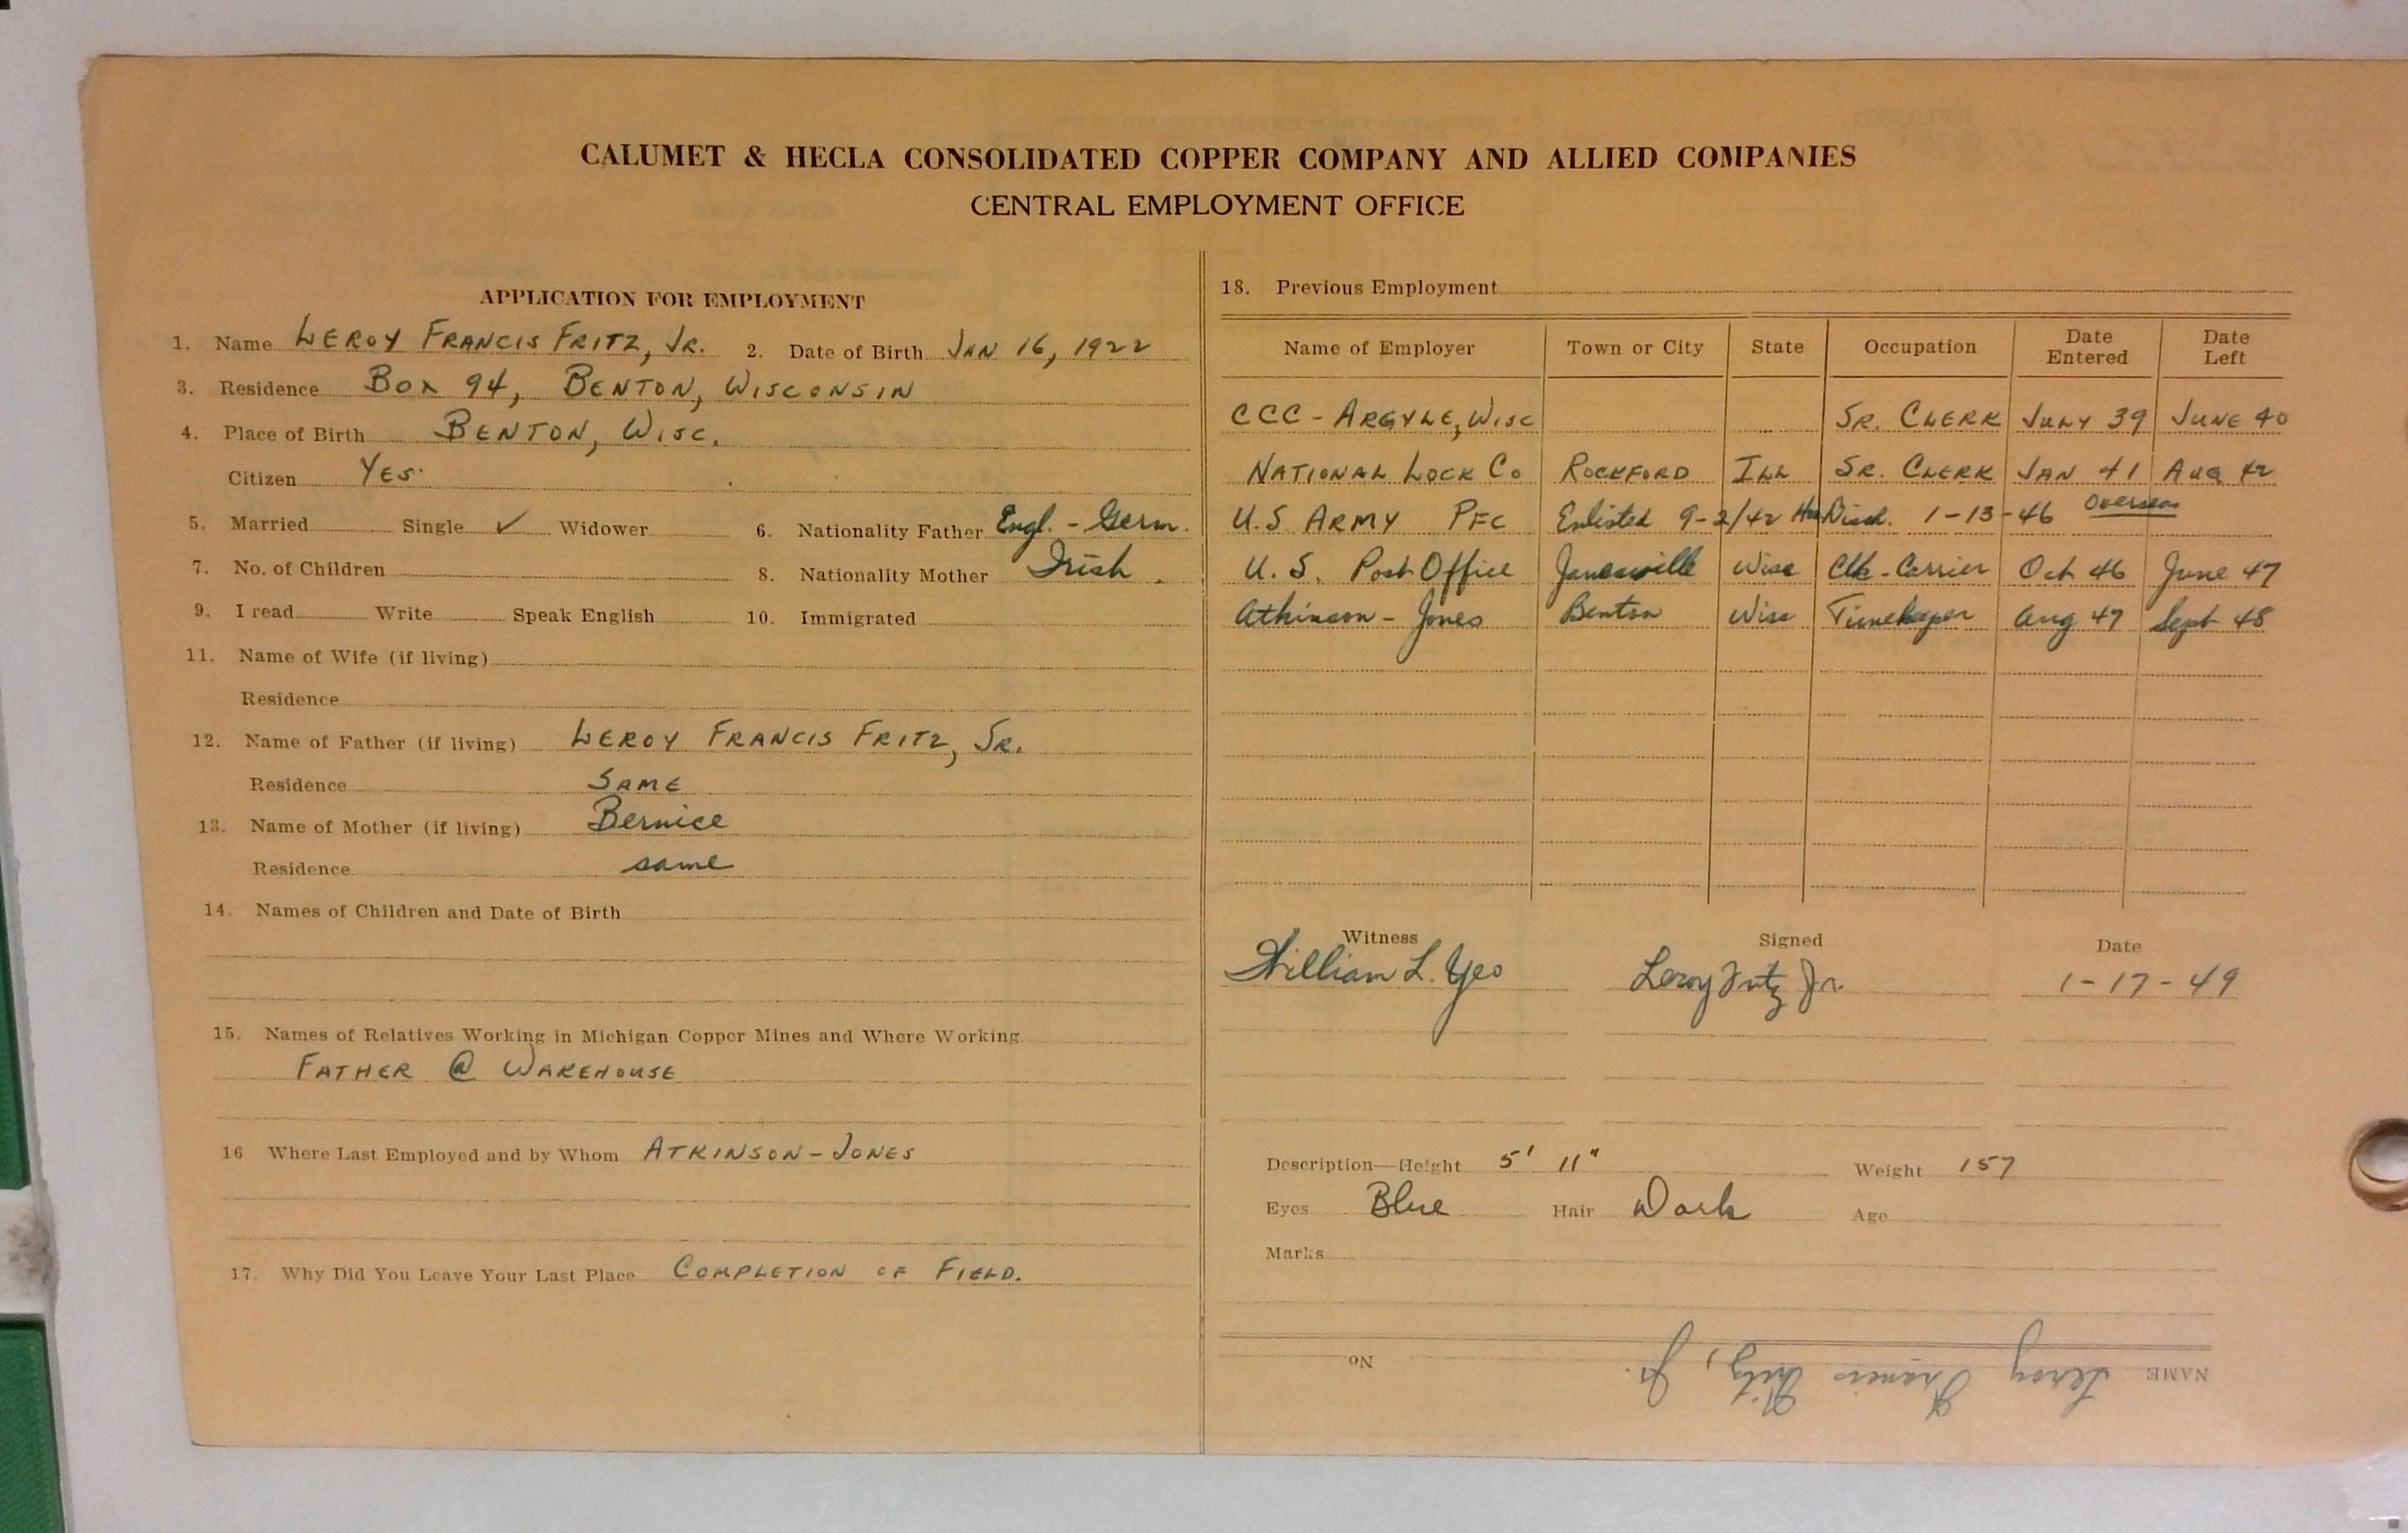 CALUMET & HECLA CONSOLIDATED COPPER COMPANY AND ALLIED COMPANIES
CENTRAL EMPLOYMENT OFFICE
APPLICATION FOR EMPLOYMENT
1. Name LEROY FRANCIS FRITZ, JR. 2. Date of Birth JAN 16, 1922
3. Residence BOX 94, BENTON, WISCONSIN
4. Place of Birth BENTON, WISC.
Citizen YES
5. Married Single ✓ Widower 6. Nationality Father Engl. - Germ.
7. No. of Children 8. Nationality Mother Irish.
9. I read Write Speak English 10. Immigrated
11. Name of Wife (if living)
Residence
12. Name of Father (if living) LEROY FRANCIS FRITZ, SR.
Residence SAME
13. Name of Mother (if living) Bernice
Residence same
14. Names of Children and Date of Birth
15. Names of Relatives Working in Michigan Copper Mines and Where Working
FATHER @ WAREHOUSE
16 Where Last Employed and by Whom ATKINSON-JONES
17. Why Did You Leave Your Last Place COMPLETION OF FIELD.
18. Previous Employment
Name of Employer Town or City State Occupation Date Entered Date Left
CCC - ARGYLE, WISC SR. CLERK JULY 39 JUNE 40
NATIONAL LOCK CO ROCKFORD ILL SR. CLERK JAN 41 AUG 42
U.S ARMY PFC Enlisted 9-2/42 Disch. 1-13-46 Overseas
U.S. Post Office Janesville Wisc Clk-Carrier Oct 46 June 47
Atkinson - Jones Benton Wisc Timekeeper Aug 47 Sept 48
Witness Signed Date
William L. Yeo Leroy Fritz Jr. 1-17-49
Description—Height 5' 11" Weight 157
Eyes Blue Hair Dark Age
Marks
NAME Leroy Francis Fritz, Jr. No.